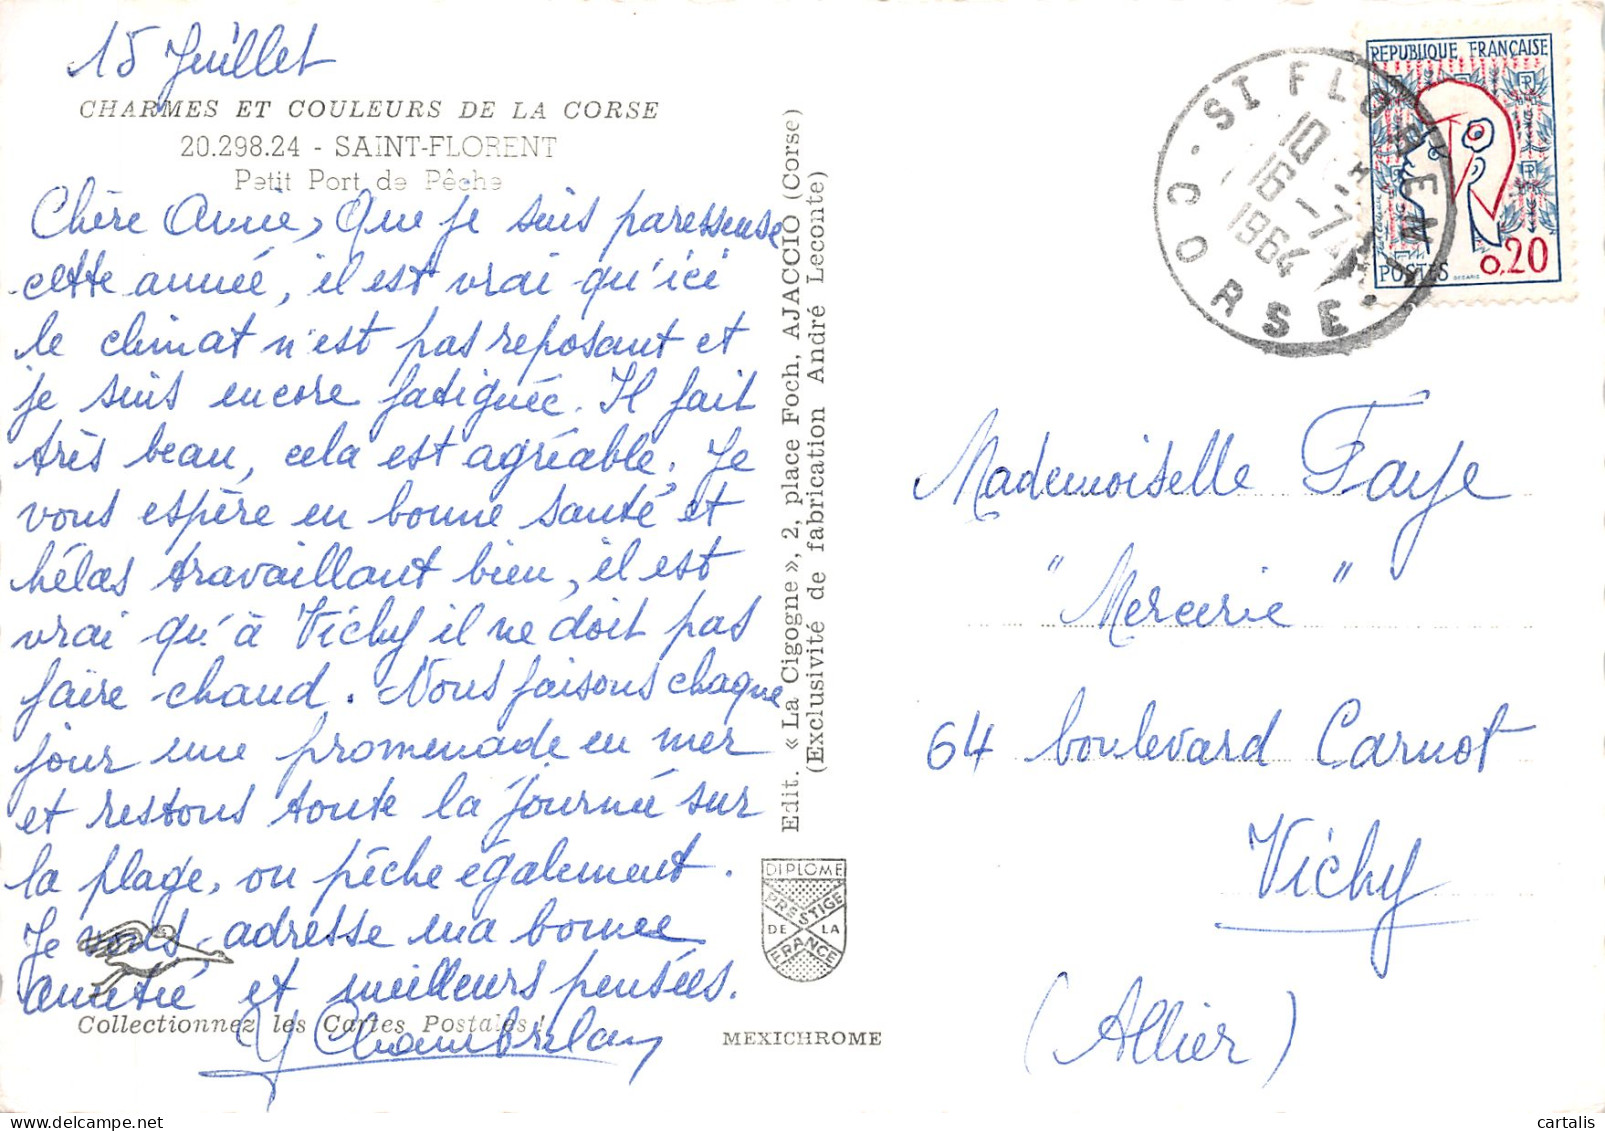 15 Juillet
CHARMES ET COULEURS DE LA CORSE
20.298.24 - SAINT-FLORENT
Petit Port de Pêche
Chère Annie, Que je suis paresseuse
cette année, il est vrai qu'ici
le climat n'est pas reposant et
je suis encore fatiguée. Il fait
très beau, cela est agréable. Je
vous espère en bonne santé et
hélas travaillant bien, il est
vrai qu'à Vichy il ne doit pas
faire chaud. Nous faisons chaque
jour une promenade en mer
et restons toute la journée sur
la plage, on pêche également.
Je vous adresse ma bonne
amitié et meilleurs pensées.
Collectionnez les Cartes Postales !
Y Chambrelan
Edit. « La Cigogne », 2, place Foch, AJACCIO (Corse)
(Exclusivité de fabrication André Leconte)
DIPLOME
PRESTIGE
DE LA
FRANCE
MEXICHROME
ST FLORENT
10 H
16 -7
1964
CORSE
REPUBLIQUE FRANÇAISE
POSTES 0,20
Mademoiselle Faye
"Mercerie"
64 boulevard Carnot
Vichy
(Allier)
cartalis